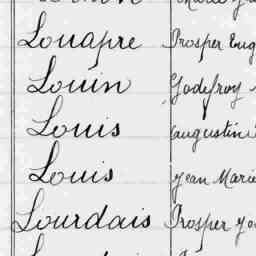 Louapre Prosper Eug
Louin Godefroy
Louis Augustin
Louis Jean Marie
Lourdais Prosper